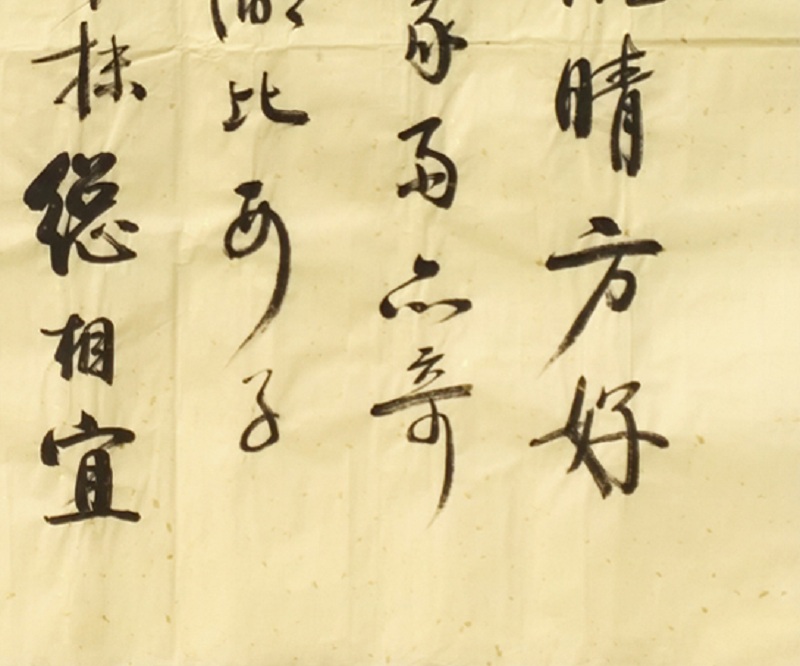 晴方好
雨亦奇
比西子
抹總相宜